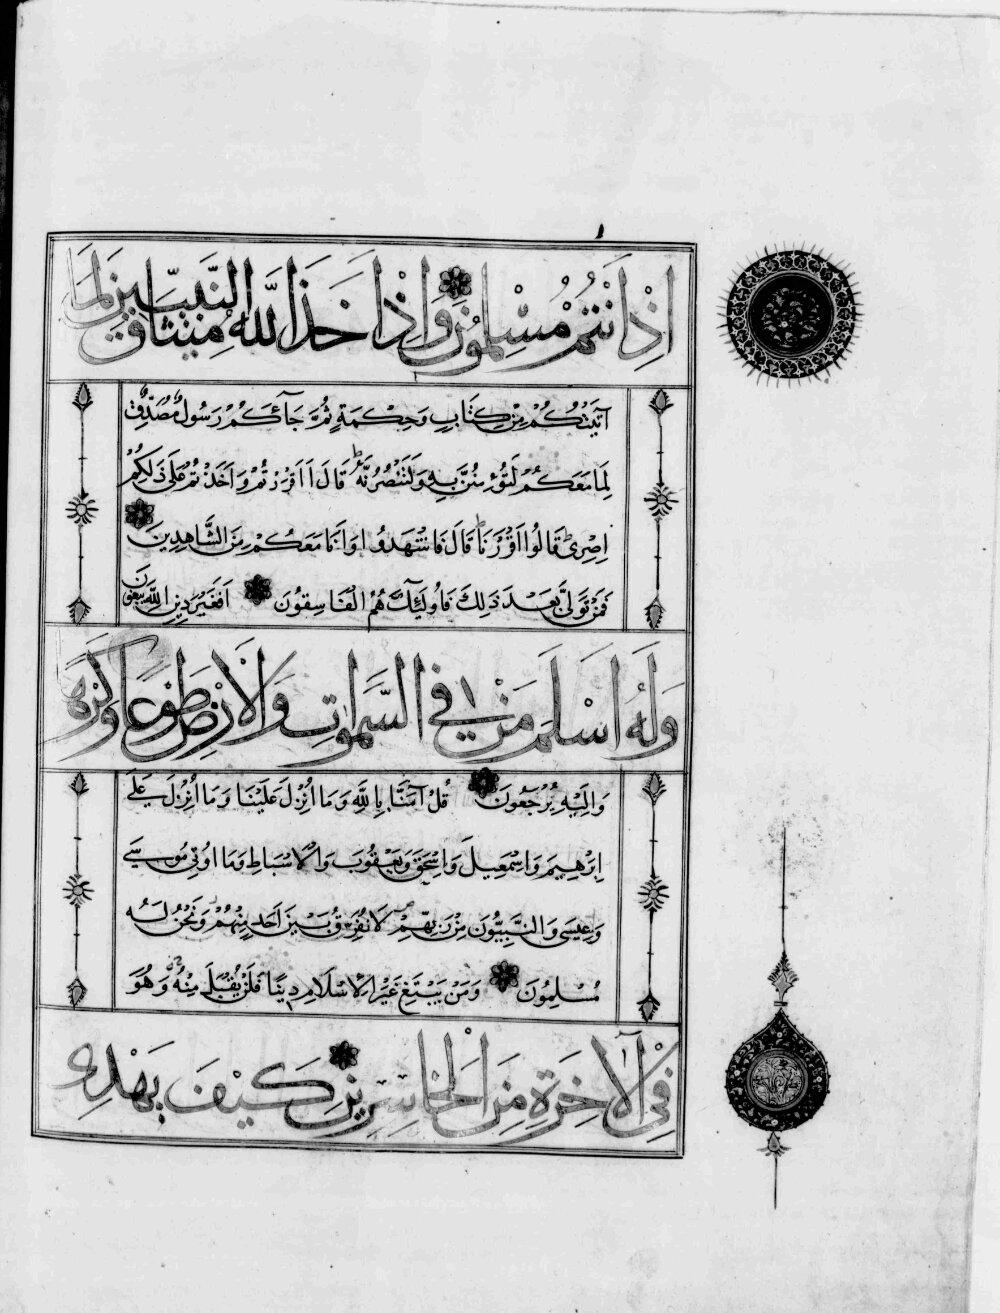 اِذْ اَنْتُمْ مُسْلِمُونَ وَاِذْ اَخَذَ اللّٰهُ مِيثَاقَ النَّبِيّٖنَ لَمَا
آتَيْتُكُمْ مِنْ كِتَابٍ وَحِكْمَةٍ ثُمَّ جَآءَكُمْ رَسُولٌ مُصَدِّقٌ
لِمَا مَعَكُمْ لَتُؤْمِنُنَّ بِهِ وَلَتَنْصُرُنَّهُ قَالَ ءَاَقْرَرْتُمْ وَاَخَذْتُمْ عَلٰى ذٰلِكُمْ
اِصْرِى قَالُوا اَقْرَرْنَا قَالَ فَاشْهَدُوا وَاَنَا مَعَكُمْ مِنَ الشَّاهِدِينَ
فَمَنْ تَوَلّٰى بَعْدَ ذٰلِكَ فَاُولٰٓئِكَ هُمُ الْفَاسِقُونَ اَفَغَيْرَ دِينِ اللّٰهِ يَبْغُونَ
وَلَهُ اَسْلَمَ مَنْ فِي السَّمٰوَاتِ وَالْاَرْضِ طَوْعًا وَكَرْهًا
وَاِلَيْهِ يُرْجَعُونَ قُلْ آمَنَّا بِاللّٰهِ وَمَا اُنْزِلَ عَلَيْنَا وَمَا اُنْزِلَ عَلٰى
اِبْرٰهِيمَ وَاِسْمٰعِيلَ وَاِسْحٰقَ وَيَعْقُوبَ وَالْاَسْبَاطِ وَمَا اُوتِىَ مُوسٰى
وَعِيسٰى وَالنَّبِيُّونَ مِنْ رَبِّهِمْ لَا نُفَرِّقُ بَيْنَ اَحَدٍ مِنْهُمْ وَنَحْنُ لَهُ
مُسْلِمُونَ وَمَنْ يَبْتَغِ غَيْرَ الْاِسْلَامِ دِينًا فَلَنْ يُقْبَلَ مِنْهُ وَهُوَ
فِي الْاٰخِرَةِ مِنَ الْخَاسِرِينَ كَيْفَ يَهْدِى